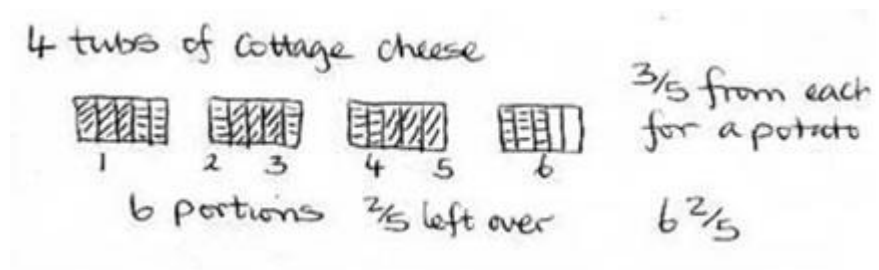 4 tubs of cottage cheese
3/5 from each
for a potato
1 2 3 4 5 6
6 portions 2/5 left over 6 2/5